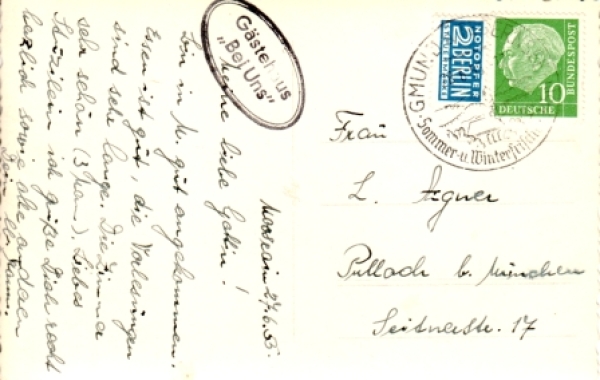 Gästehaus
"Bei Uns"
Moosrain 27.6.55.
Meine liebe Gabin!
Bin in M. gut angekommen.
Essen ist gut, die Vorlesungen
sind sehr lange. Die Zimmer
sehr schön (3 Frau.). Liebes
ich grüße Dich recht
herzlich sowie alle anderen
NOTOPFER
2 BERLIN
STEUERMARKE
GMUND
Sommer- u. Winterfrische
10
DEUTSCHE
BUNDESPOST
Frau
L. Aigner
Pullach b. München
Seitnerstr. 17